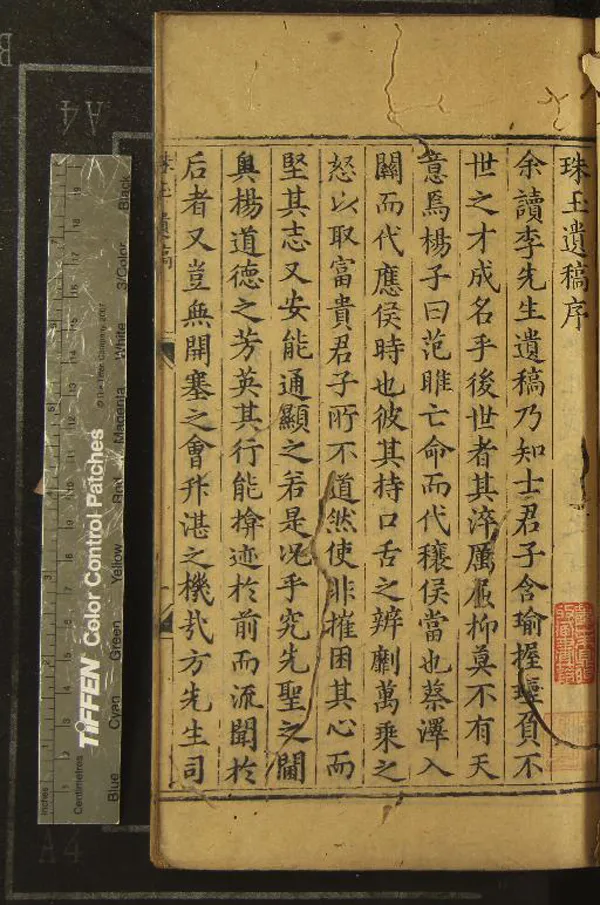 珠玉遺稿序
余讀李先生遺稿乃知士君子含瑜握瑾負不
世之才成名乎後世者其淬厲屈抑莫不有天
意焉楊子曰范雎亡命而代穰侯當也蔡澤入
關而代應侯時也彼其持口舌之辨劘萬乘之
怒以取富貴君子所不道然使非摧困其心而
堅其志又安能通顯之若是况乎究先聖之閫
奥楊道德之芳英其行能揜迹於前而流聞於
后者又豈無開塞之會升湛之機㢤方先生司
珠玉遺稿
TIFFEN Color Control Patches
© The Tiffen Company, 2007
Inches
Centimetres
Blue Cyan Green Yellow Red Magenta White 3/Color Black
A4
A4
B